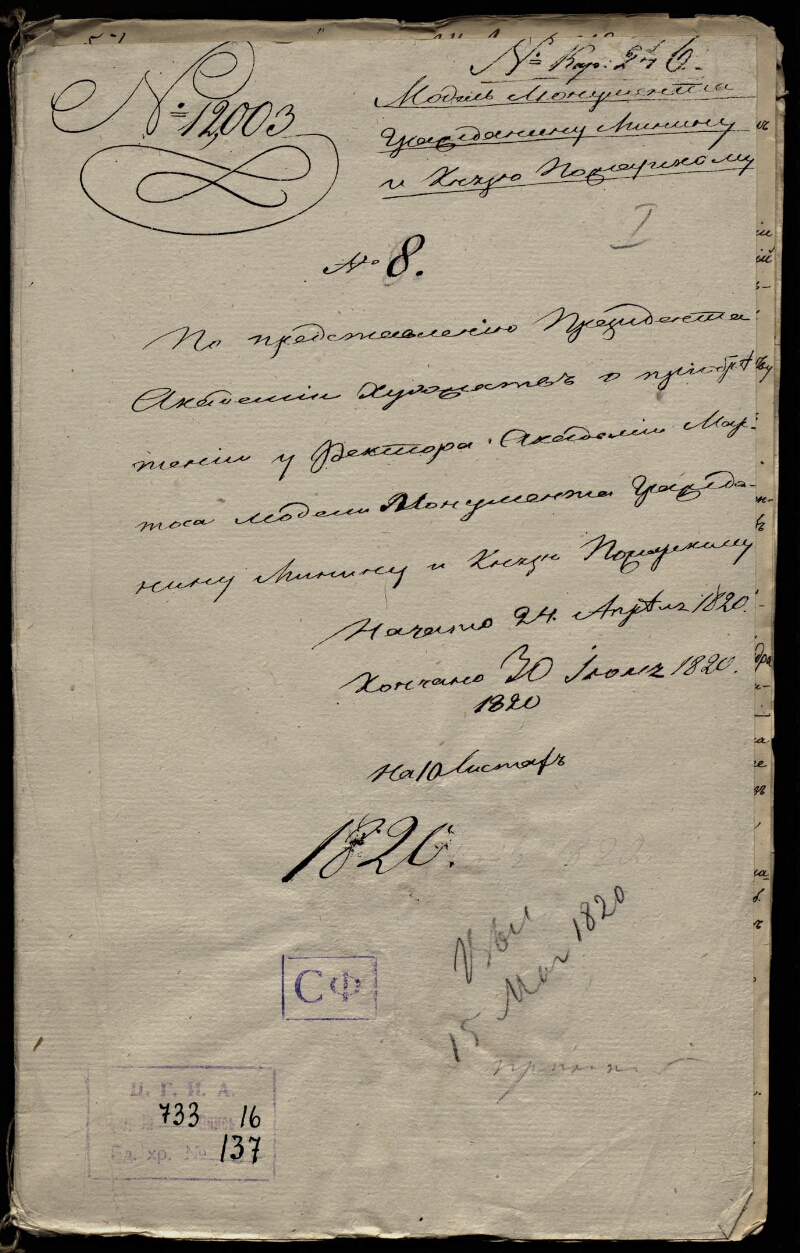 № 12,003
№ Кар: 6.
Модель Монумента
Гражданину Минину
и Князю Пожарскому
I
№ 8.
По представленію Президента
Академіи Художествъ о пріобрѣ
теніи у Ректора Академіи Мар-
тоса модели Монумента Гражда-
нину Минину и Князю Пожарскому
Начато 24. Апрѣля 1820.
Кончано 30 Іюля 1820.
1820
На 10 Листахъ
1820.
15 Мая 1820
СФ
Ц. Г. И. А.
733 опись 16
Ед. хр. № 137